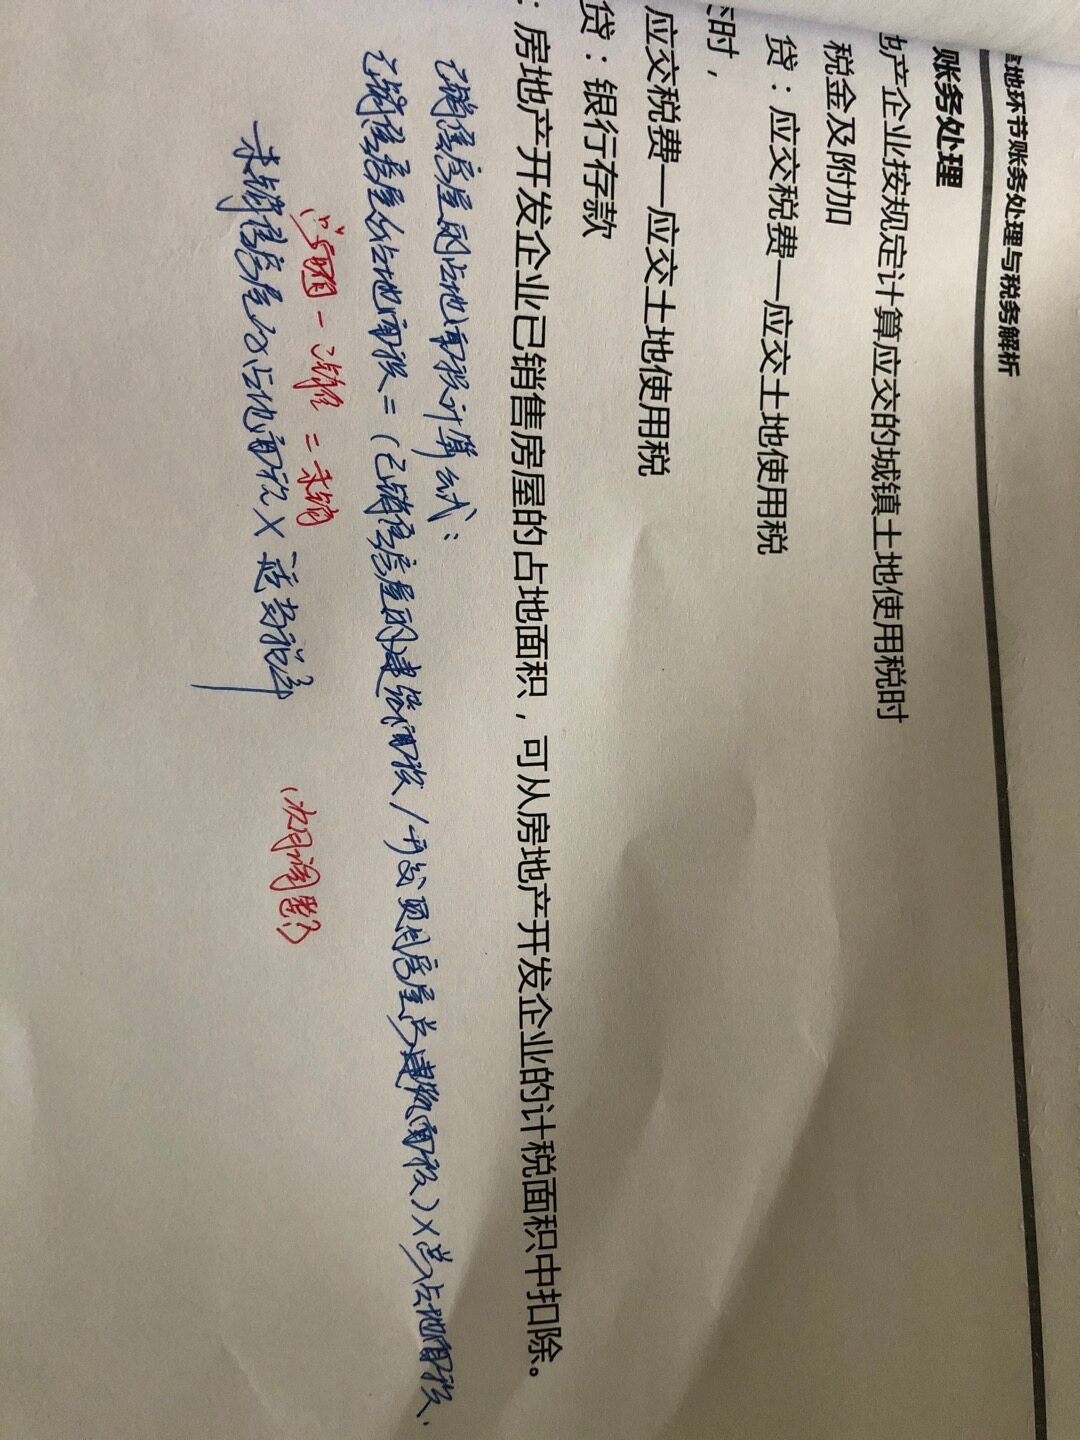 地环节账务处理与税务解析
账务处理
地产企业按规定计算应交的城镇土地使用税时
税金及附加
贷：应交税费—应交土地使用税
时，
应交税费—应交土地使用税
贷：银行存款
：房地产开发企业已销售房屋的占地面积，可从房地产开发企业的计税面积中扣除。
已销售房屋的占地面积计算公式：
已销售房屋的占地面积＝(已销售房屋的建筑面积/开发项目房屋总建筑面积)×总占地面积.
－已销售＝未销
未销售房屋的占地面积×适当税率
(次月调整)